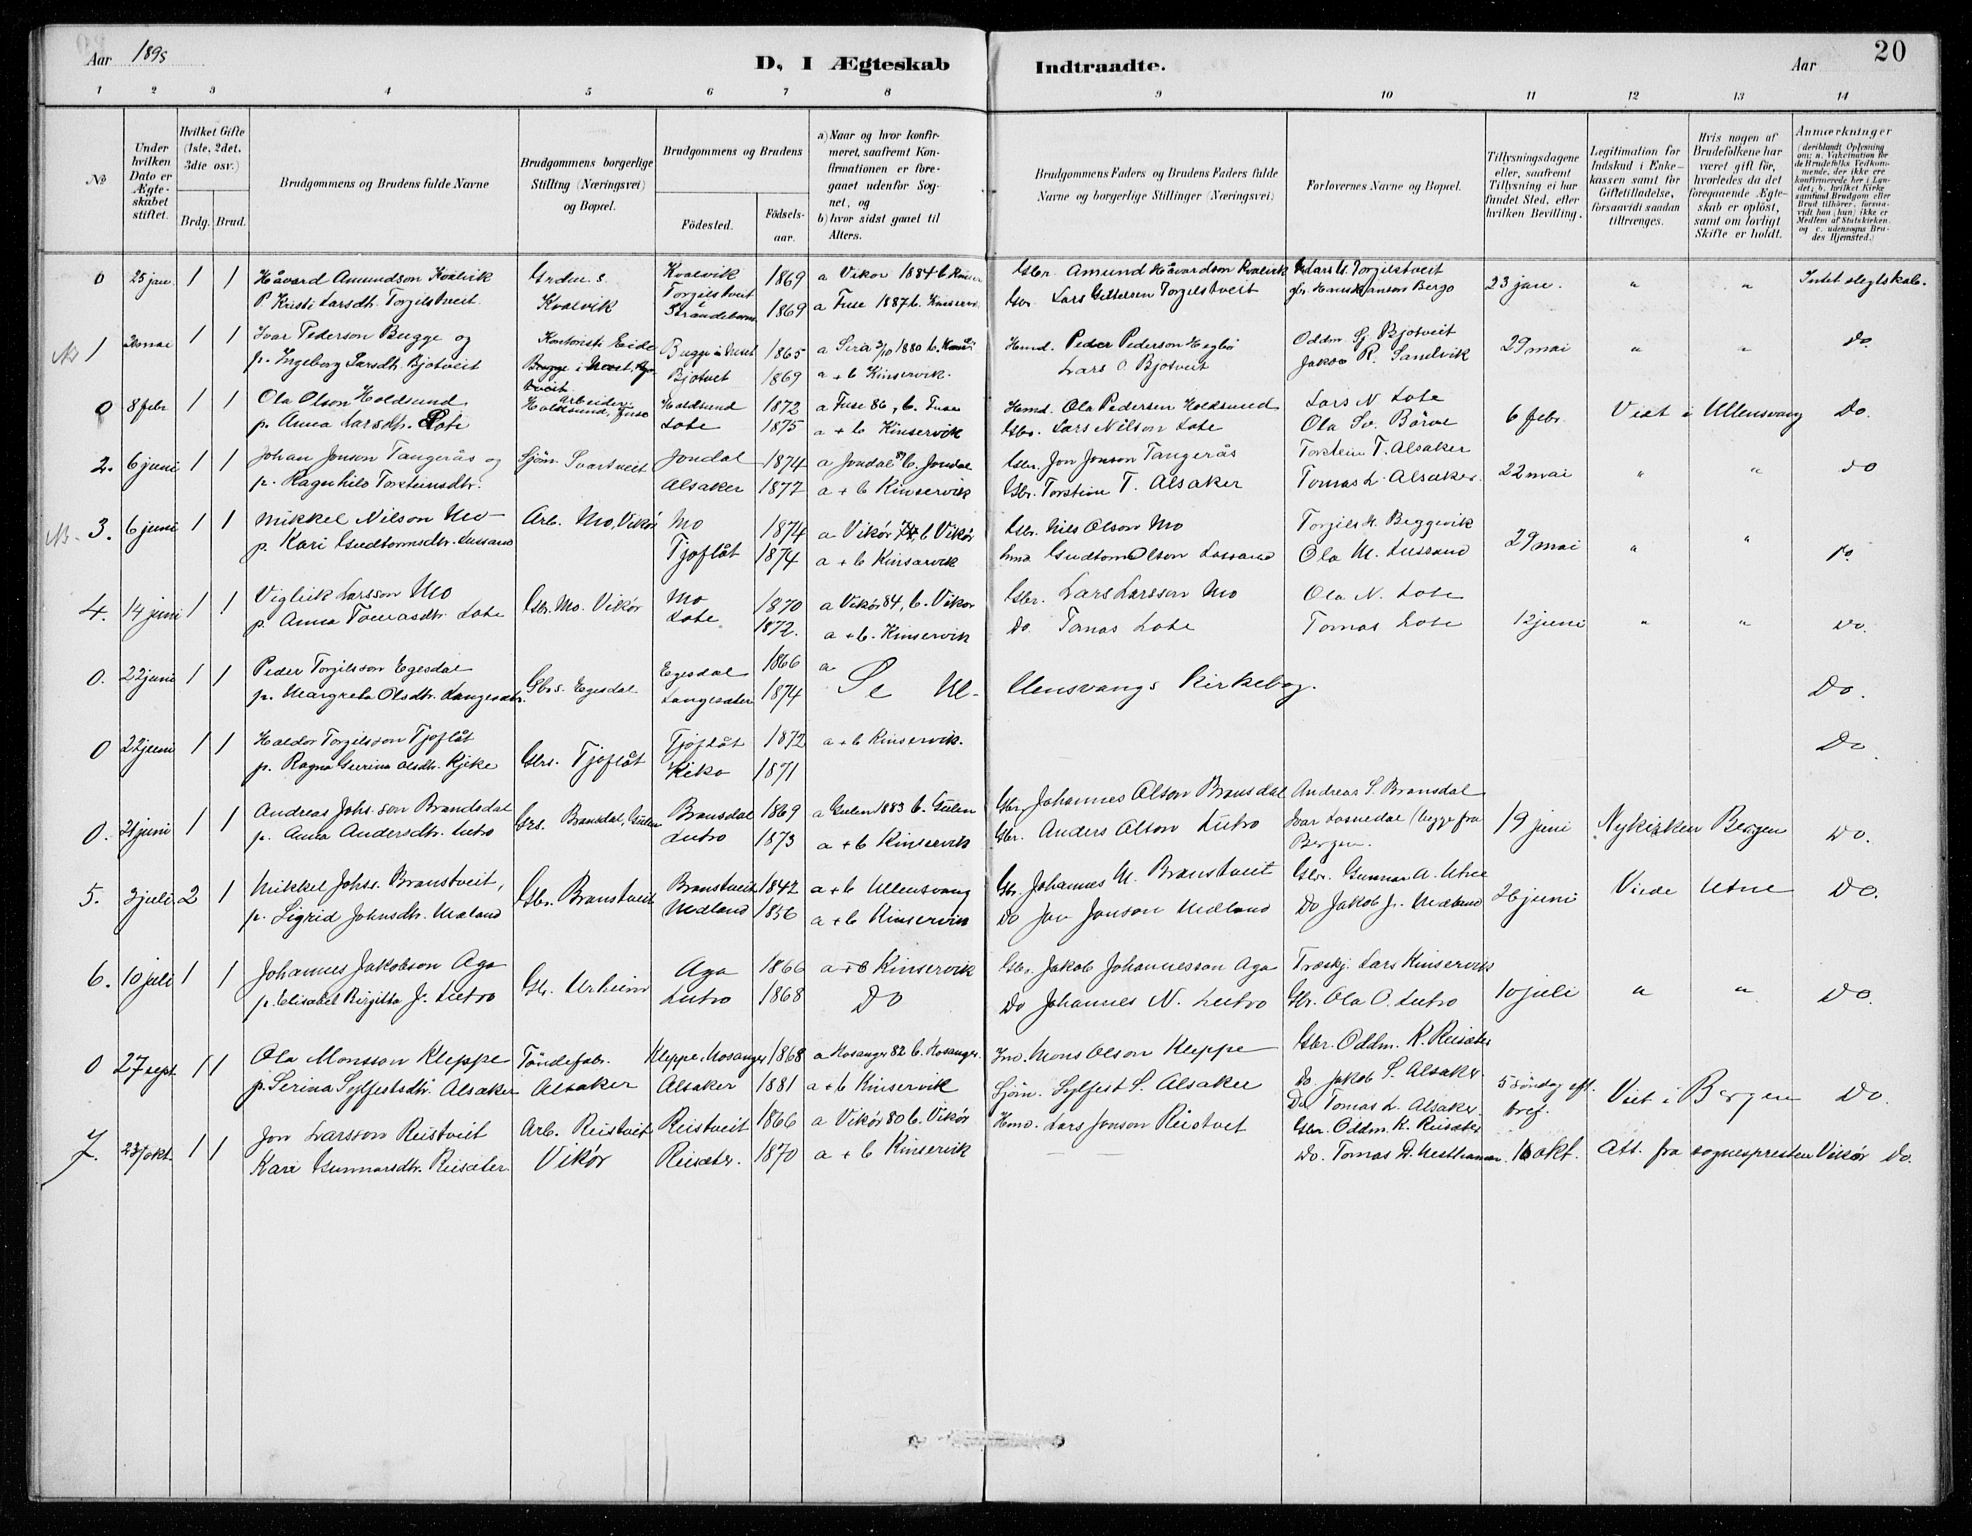 Aar 1895
D, I Ægteskab Indtraadte.
Aar
20
1 2 3 4 5 6 7 8 9 10 11 12 13 14
№
Under hvilken Dato er Ægteskabet stiftet.
Hvilket Gifte (1ste, 2det, 3die osv.)
Brdg. Brud.
Brudgommens og Brudens fulde Navne
Brudgommens borgerlige Stilling (Næringsvei) og Bopæl.
Brudgommens og Brudens
Fødested.
Fødselsaar.
a) Naar og hvor konfirmeret, saafremt Konfirmationen er foregaaet udenfor Sognet, og
b) hvor sidst gaaet til Alters.
Brudgommens Faders og Brudens Faders fulde Navne og borgerlige Stillinger (Næringsvei)
Forlovernes Navne og Bopæl.
Tillysningsdagene eller, saafremt Tillysning ei har fundet Sted, efter hvilken Bevilling.
Legitimation for Indskud i Enkekassen samt for Giftetilladelse, forsaavidt saadan tiltrænges.
Hvis nogen af Brudefolkene har været gift før, hvorledes da det foregaaende Ægteskab er opløst, samt om lovligt Skifte er holdt.
Anmærkninger (deriblandt Oplysning om: a. Vakcination for de Brudefolks Vedkommende, der ikke ere konfirmerede her i Landet; b. hvilket Kirkesamfund Brudgom eller Brud tilhører, forsaavidt han (hun) ikke er Medlem af Statskirken, og c. udensogns Brudes Hjemsted.)
0 25 jan 1 1 Håvard Amundson Kvalvik Grdm. s. Kvalvik 1869 a Vikør 1884 b. Gbr. Amund Håvardson Kvalvik Lars U. Torgilstveit 23 jan. " " Intet slegtskab.
P. Kristi Larsdtr. Torgilstveit Kvalvik Torgilstveit i Strandebarm 1869 a Fuse 1887 b. Kinservik Gbr. Lars Torgilstveit gbr. Hans Berge
1 mai 1 1 Ivar Pederson Bugge og Kontorist i Eide Bugge 1865 a 1880 b. Hmd. Peder Pederson Oddm. Sj. Bjotveit 29 mai " " Do.
p. Ingeborg Larsdtr. Bjotveit Bjotveit 1869 a + b Kinservik. Lars O. Bjotveit Jakob R. Sandvik
0 8 febr 1 1 Ola Olson Holdsund Arbeider Holdsund, Fuse Holdsund 1872 a Fuse 86, b. Fuse Hmd. Ola Pedersen Holdsund Lars N. Lote 6 febr. Viet i Ullensvang Do.
p. Anna Larsdtr. Lote Lote 1875 a + b Kinservik Gbr. Lars Nilson Lote Ola Sv. Börve
2. 6 juni 1 1 Johan Jonson Tangerås og Sjøm. Svartveit Jondal 1874 a Jondal b. Jondal Gbr. Jon Jonson Tangerås Torstein T. Alsaker 22 mai " " Do
p. Ragnhild Torsteinsdtr. Alsaker 1877 a + b Kinservik Gbr. Torstein T. Alsaker Tomas L. Alsaker.
3. 6 juni 1 1 Mikkel Nilson Mo Arb. Mo, Vikør Mo 1874 a Vikør b Vikør Gbr. Nils Olson Mo Torgils M. Beggevik 29 mai " " Do.
p. Kari Gudtormsdtr. Lussand Tjoflåt 1874 a + b Kinsarvik Gudtorm Olson Lussand Ola M. Lussand
4. 14 juni 1 1 Vigleik Larsson Mo Gbr. Mo. Vikør Mo 1870 a Vikør 84, b. Vikør Gbr. Lars Larsson Mo Ola N. Lote 12 juni " " Do.
p. Anna Tomasdtr. Lote Lote 1872. a + b. Kinservik Do Tomas Lote Tomas Lote
0. 22 juni 1 1 Peder Torgilsson Egesdal Gbrs. Egesdal Egesdal 1866 a Se Ullensvangs Kirkebog. Do.
p. Margreta Olsdtr. Langesæter Langesæter 1874
0 22 juni 1 1 Haldor Torgilsson Tjoflåt Gbrs. Tjoflåt Tjoflåt 1872 a + b Kinservik. Do
p. Ragna Gurina Olsdtr. Kjeke Kieko 1871
0. 21 juni 1 1 Andreas Johs.son Brandsdal Gbrs. Bransdal, Gulen Bransdal 1869 a Gulen 1883 b. Gulen Gbr. Johannes Olson Bransdal Andreas S. Bransdal 19 juni Nykirken Bergen Do.
p. Anna Andersdtr. Lutro Lutro 1873 a + b Kinservik Gbr. Anders Olson Lutro Ivar Losnedal (begge fra Bergen.
5. 3 juli 2 1 Mikkel Johs. Branstveit, Gbr. Branstveit Branstveit 1842 a + b Ullensvang Gbr. Johannes M. Branstveit Gbr. Gunnar A. Utne 26 juni Viede Utne Do.
p. Sigrid Johnsdtr. Mæland Mæland 1856 a + b Kinservik Do Jon Jonson Mæland Do Jakob J. Mæland
6. 10 juli 1 1 Johannes Jakobson Aga Gbr. Urheim Aga 1866 a + b Kinservik Gbr. Jakob Johannesson Aga Træskj. Lars Kinservik 10 juli " " Do.
p. Elisabet Birgitta J. Lutro Lutro 1868 Do Do Johannes N. Lutro Gbr. Ola O. Lutro
0 27 sept 1 1 Ola Monsson Kleppe Tøndefabr. Kleppe, Hosanger 1868 a Hosanger 82 b. Hosanger. Mons Olson Kleppe Gbr. Oddm. K. Reisæter
p. Serina Sylfestsdtr. Alsaker Alsaker Alsaker 1881 a + b Kinservik Sjøm. Sylfest S. Alsaker Do Jakob S. Alsaker. 5 søndag eft. tref. Viet i Bergen Do.
Do Tomas L. Alsaker.
7. 23/okt. 1 1 Jon Larsson Reistveit Arb. Reistveit Reistveit 1866 a Vikør 80 b. Vikør Hmd. Lars Jonson Reistveit Gbr. Oddm. K. Reisæter
Kari Gunnarsdtr. Reisæter. Vikør Reisæter. 1870 a + b Kinservik Do. Tomas D. 16 okt. Att. fra sognepresten Vikør Do.